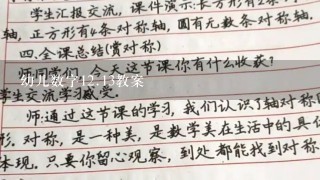 学生汇报交流，课件演示：长方形有2条
轴，正方形有4条对称轴，圆有无数条对称轴.
四.全课总结(赏对称)
今天这节课你有什么收获？
幼儿数学12、13教案
学生交流学习感受.
师:通过这节课的学习，我们认识了轴对称
形.对称，是一种美，是数学美在生活中的具体
体现.只要你留心观察，到处都能找到对称